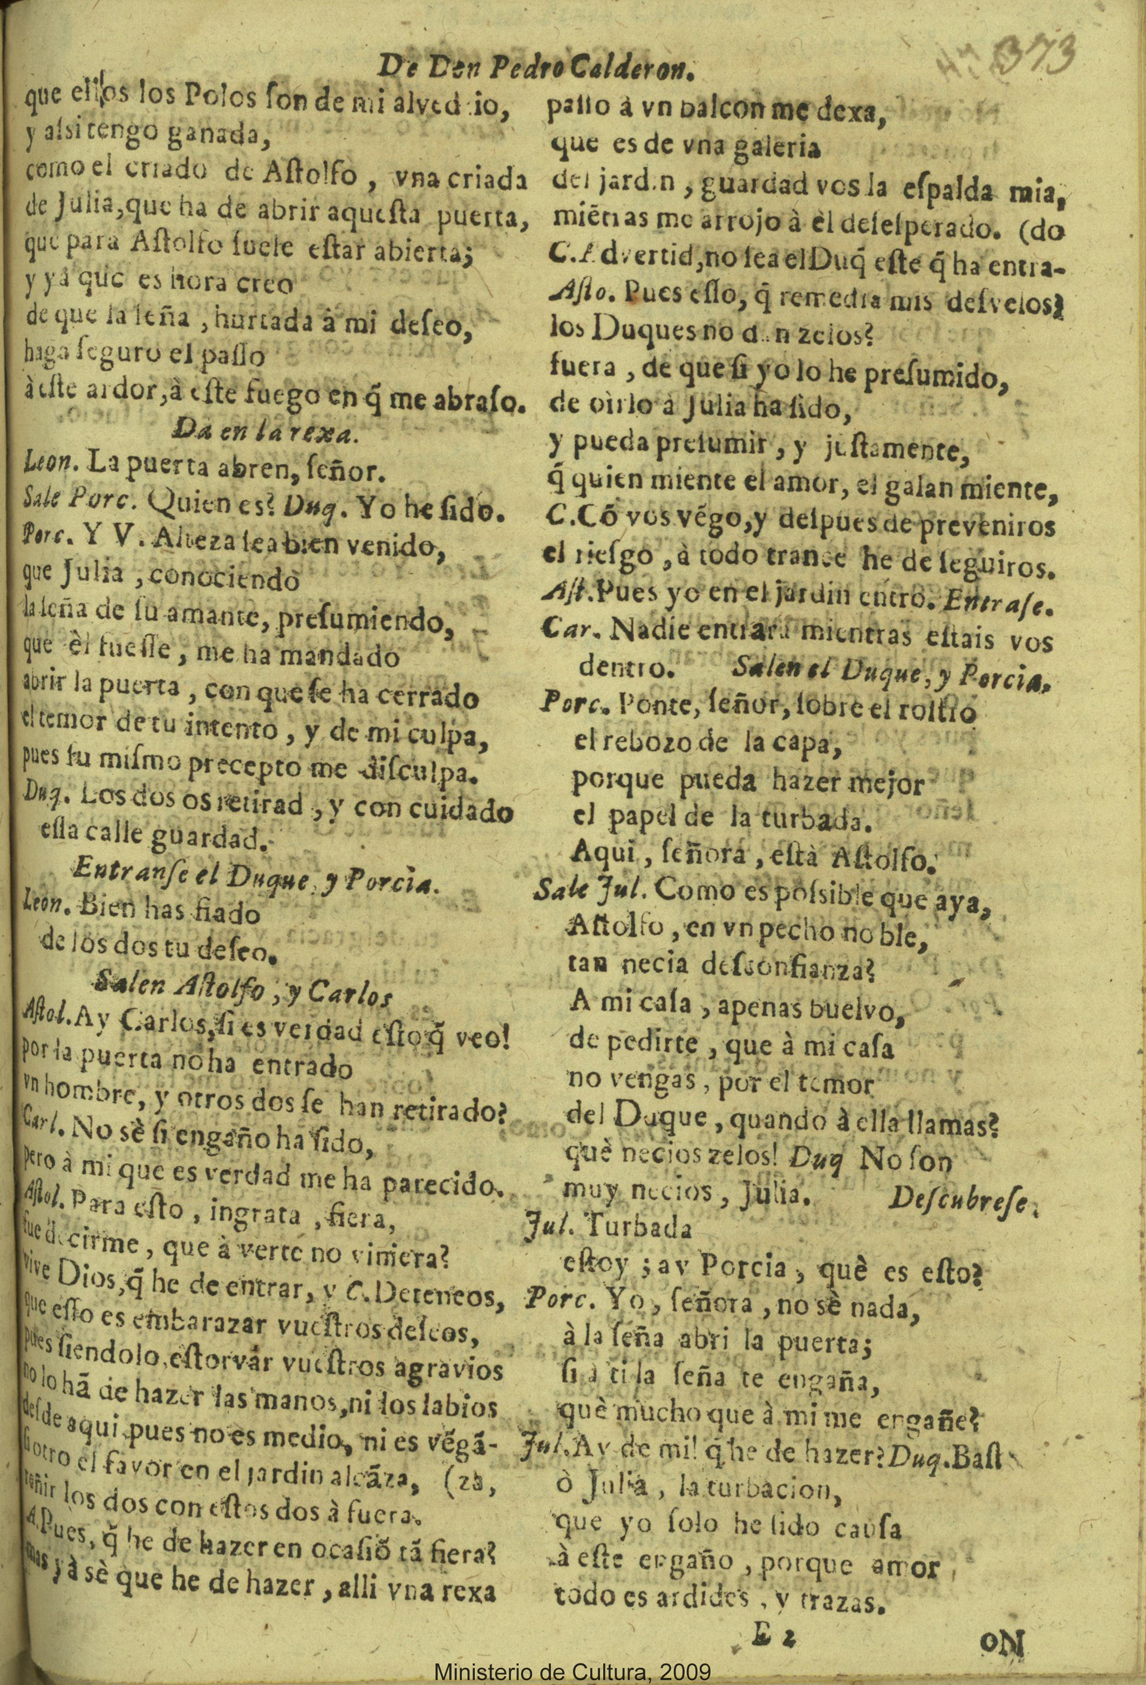 De Don Pedro Calderon.
373
que ellos los Polos son de mi alvedrio,
y alsi tengo ganada,
como el criado de Astolfo, vna criada
de Julia, que ha de abrir aquesta puerta,
que para Astolfo suele estar abierta;
y yá que es hora creo
de que la seña, hurtada à mi deseo,
haga seguro el passo
à este ardor, à este fuego en q̃ me abraso.
Da en la rexa.
Leon. La puerta abren, señor.
Sale Porc. Quien es? Duq. Yo he sido.
Porc. Y V. Alteza sea bien venido,
que Julia, conociendo
la seña de su amante, presumiendo,
que èl fuesse, me ha mandado
abrir la puerta, con que se ha cerrado
el temor de tu intento, y de mi culpa,
pues su mismo precepto me disculpa.
Duq. Los dos os retirad, y con cuidado
essa calle guardad.
Entranse el Duque, y Porcia.
Leon. Bien has fiado
de los dos tu deseo.
Salen Astolfo, y Carlos
Astol. Ay Carlos, si es verdad esto q̃ veo!
por la puerta no ha entrado
vn hombre, y otros dos se han retirado?
Carl. No sè si engaño ha sido,
pero à mi que es verdad me ha parecido.
Astol. Para esto, ingrata, fiera,
fue decirme, que à verte no viniera?
vive Dios, q̃ he de entrar, y C. Deteneos,
que esso es embarazar vuestros deseos,
pues siendolo, estorvar vuestros agravios
no lo hã de hazer las manos, ni los labios
desde aqui, pues no es medio, ni es vẽgã-
si otro el favor en el jardin alcãza, (za,
reñir los dos con estos dos à fuera.
A. Pues, q̃ he de hazer en ocasiõ tã fiera?
mas yà sè que he de hazer, alli vna rexa
passo à vn balcon me dexa,
que es de vna galeria
del jardin, guardad vos la espalda mia,
miẽtras me arrojo à èl desesperado. (do
C. Advertid, no sea el Duq̃ este q̃ ha entra-
Asto. Pues esso, q̃ remedia mis desvelos?
los Duques no dan zelos?
fuera, de que si yo lo he presumido,
de oirlo à Julia ha sido,
y pueda presumir, y justamente,
q̃ quien miente el amor, el galan miente,
C. Cõ vos vẽgo, y despues de preveniros
el riesgo, à todo trance he de seguiros.
Ast. Pues yo en el jardin entro. Entrase.
Car. Nadie entrarà mientras estais vos
dentro. Salen el Duque, y Porcia.
Porc. Ponte, señor, sobre el rostro
el rebozo de la capa,
porque pueda hazer mejor
el papel de la turbada.
Aqui, señora, està Astolfo.
Sale Jul. Como es possible que aya,
Astolfo, en vn pecho noble,
tan necia desconfianza?
A mi casa, apenas buelvo,
de pedirte, que à mi casa
no vengas, por el temor
del Duque, quando à ella llamas?
què necios zelos! Duq No son
muy necios, Julia. Descubrese.
Jul. Turbada
estoy; ay Porcia, què es esto?
Porc. Yo, señora, no sè nada,
à la seña abri la puerta;
si à ti la seña te engaña,
què mucho que à mi me engañe?
Jul. Ay de mi! q̃ he de hazer? Duq. Bast
ò Julia, la turbacion,
que yo solo he sido causa
à este engaño, porque amor
todo es ardides, y trazas.
E 2
No
Ministerio de Cultura, 2009